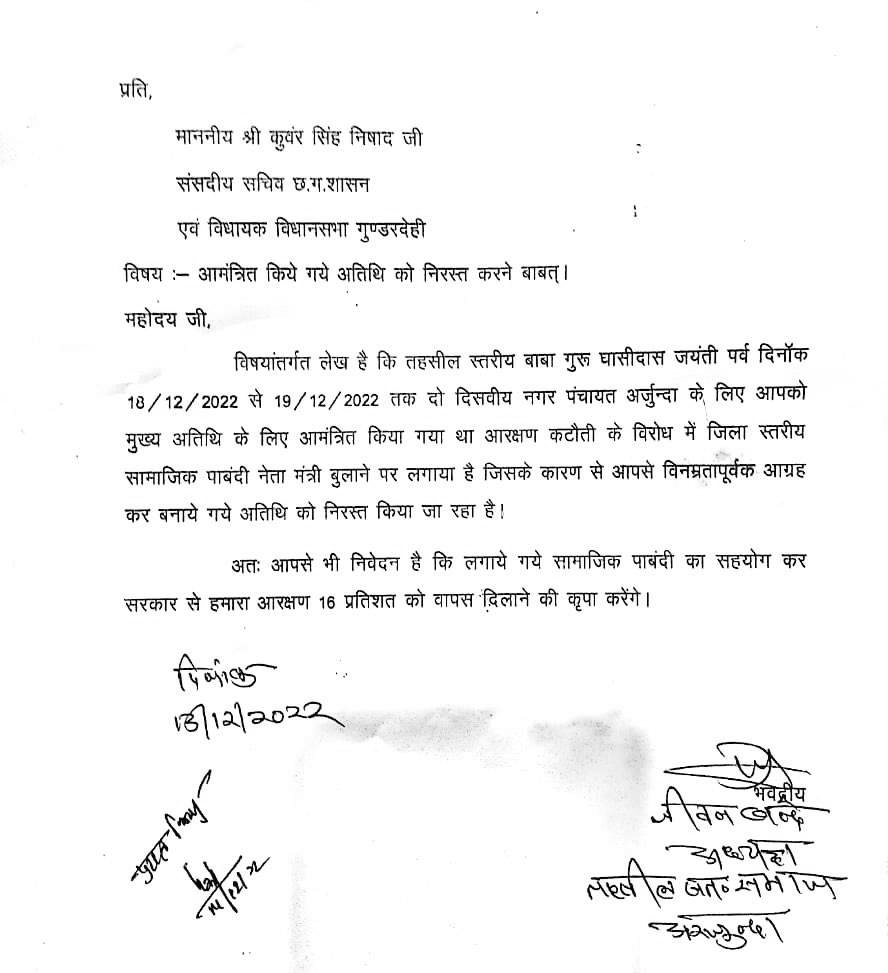 प्रति,
माननीय श्री कुवंर सिंह निषाद जी
संसदीय सचिव छ.ग.शासन
एवं विधायक विधानसभा गुण्डरदेही
विषय :– आमंत्रित किये गये अतिथि को निरस्त करने बाबत्।
महोदय जी,
विषयांतर्गत लेख है कि तहसील स्तरीय बाबा गुरू घासीदास जयंती पर्व दिनॉक
18/12/2022 से 19/12/2022 तक दो दिसवीय नगर पंचायत अर्जुन्दा के लिए आपको
मुख्य अतिथि के लिए आमंत्रित किया गया था आरक्षण कटौती के विरोध में जिला स्तरीय
सामाजिक पाबंदी नेता मंत्री बुलाने पर लगाया है जिसके कारण से आपसे विनम्रतापूर्वक आग्रह
कर बनाये गये अतिथि को निरस्त किया जा रहा है!
अतः आपसे भी निवेदन है कि लगाये गये सामाजिक पाबंदी का सहयोग कर
सरकार से हमारा आरक्षण 16 प्रतिशत को वापस दिलाने की कृपा करेंगे।
दिनांक
13/12/2022
भवदीय
जीवन
अध्यक्ष
तहसील सतनामी समाज
अरजुन्दा